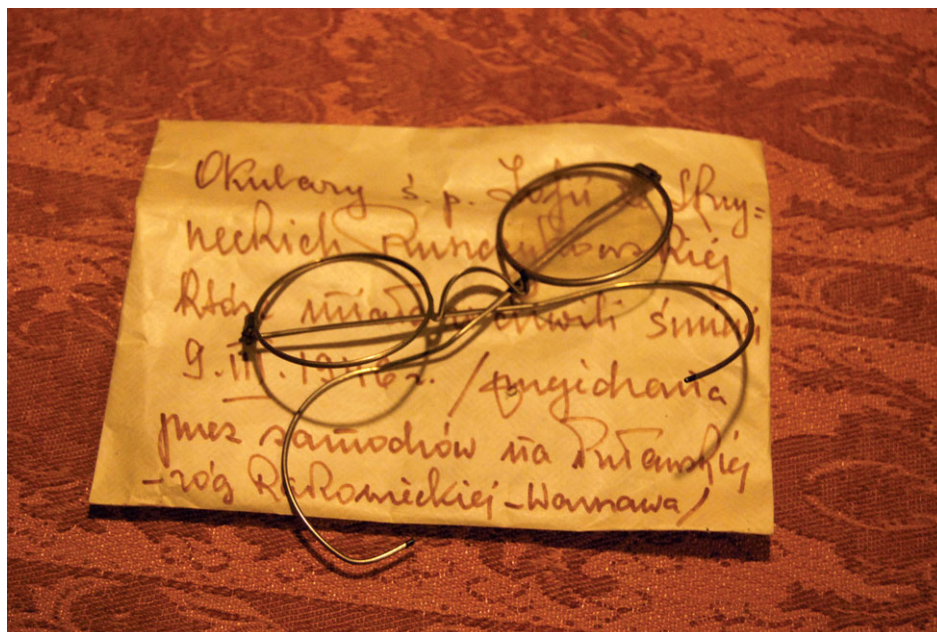 Okulary ś.p. Zofii z Skrzy=
neckich
które miała w chwili śmierci
9.III.1946r. /przejechana
przez samochów na Puławskiej
-róg Rakowieckiej-Warszawa/